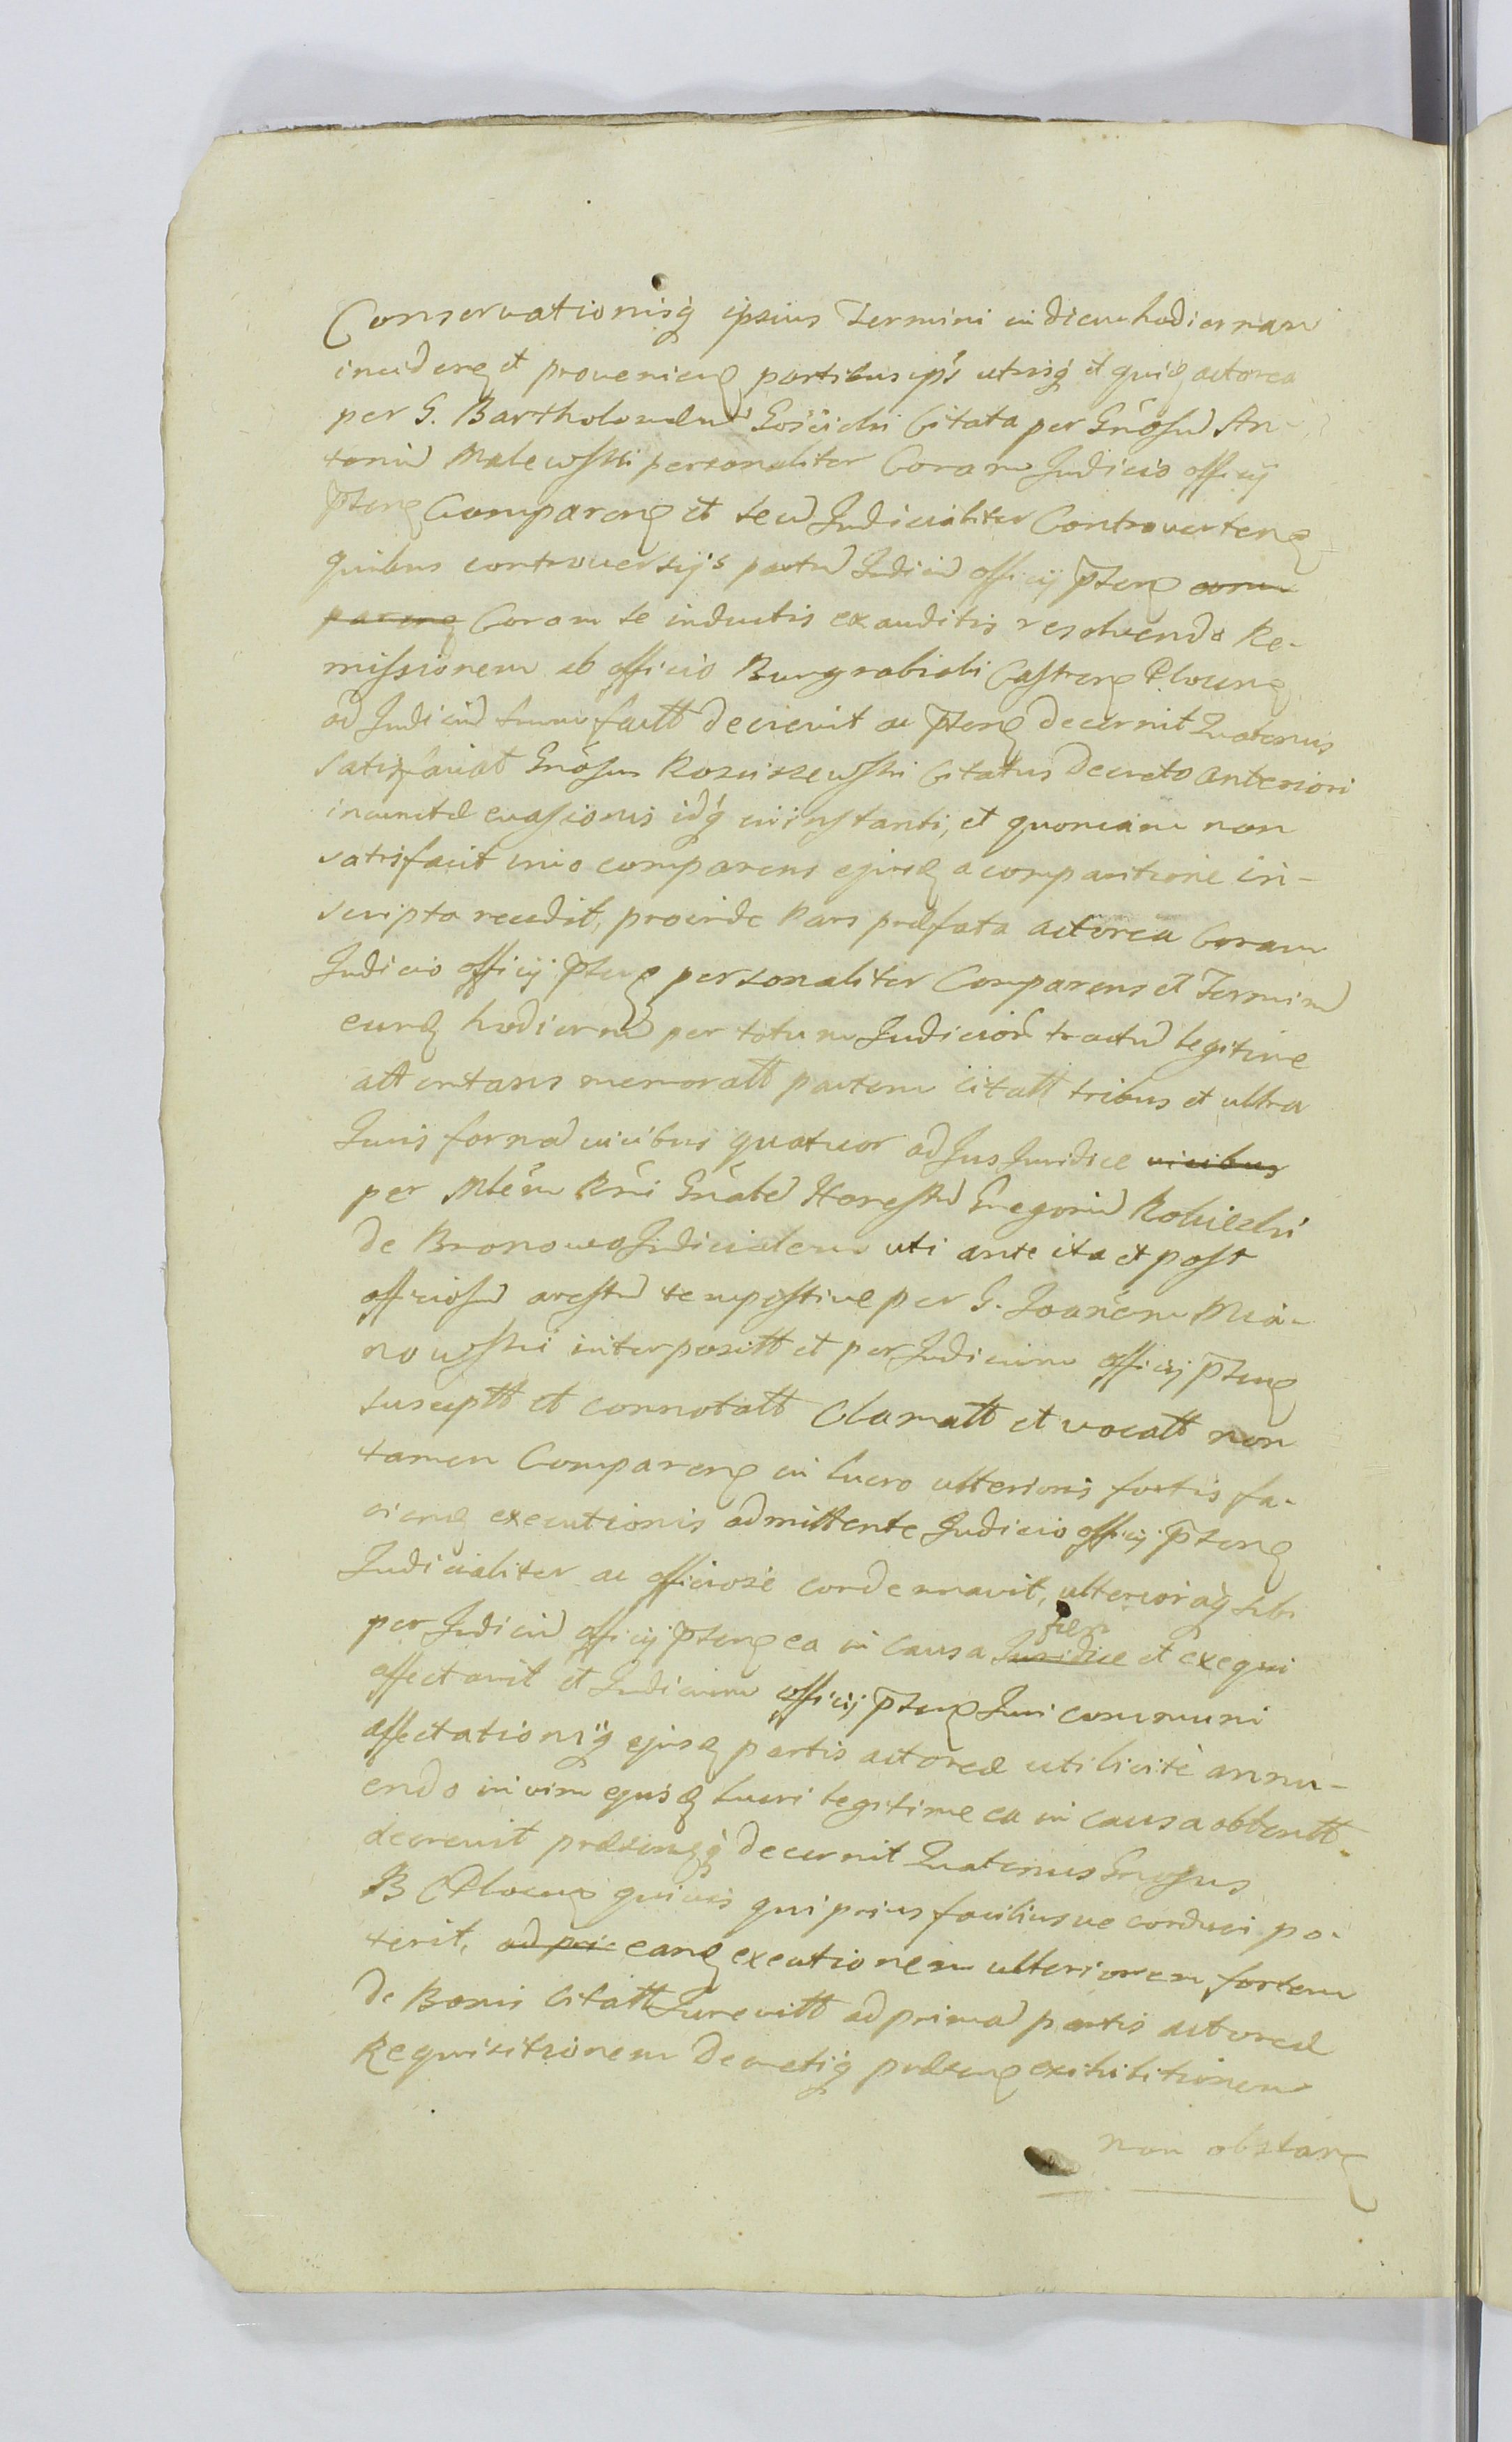 Conservationisq ipsius Termini in diem hodiernam
inciden et provenien partibus ips utrisq et quid actorea
per G. Bartholomæum Gościcki Citata per Gnosum An-
toniu Malewski personaliter Coram Judicio officij
pten Comparen et secu Judicialiter Controverten
quibus controversijs partiu Judiciu officij pten com
paren Coram se inductis exauditis resolvendo Re-
missionem ab officio Burgrabiali Castren Plocen
ad Judiciu suum fact decrevit ac pten decernit Quatenus
satisfaciat Gnosus Rosciszewski Citatus decreto anteriori
in cunctæ evasionis idq in instanti, et quoniam non
satisfacit imo comparens ejusd a comparitione in-
scripta recedit, proinde Pars præfata actorea Coram
Judicio officij pten personaliter Comparens et Terminu
eund hodiernu per totum Judicior tractu legitime
attentans memoratt partem citatt tribus et ultra
Juris forma vicibus quatuor ad Jus Juridice vicibus
per Mlem Rni Gnale Honestu Gregoriu
de Bronowo Judicialem uti ante ita et post
officiosu arestu tempestive per G. Joanem Mia-
nowski interpositt et per Judicium officij pten
susceptt et connotatt Clamatt et vocatt non
tamen Comparen in lucro ulterioris fortis fa-
cien executionis admittente Judicio officij pten
Judicialiter ac officiose condemnavit, ulterioraq sibi
per Judiciu officij pten ea in causa Juridice fieri et exequi
affectavit et Judicium officij pten Juri communi
affectationiq ejusd partis actoreæ utilicite annu-
endo in vim ejusd lucri legitime ea in causa obtentt
decrevit præsensq decernit Quatenus Gnosus
B C Plocen quivis qui prius faciliusve conduci po-
terit, ad pri eand executionem ulteriorem fortem
de Bonis Citatt Jurevitt ad prima partis actoreæ
Requisitionem decretiq præsen exhibitionem
non obstan